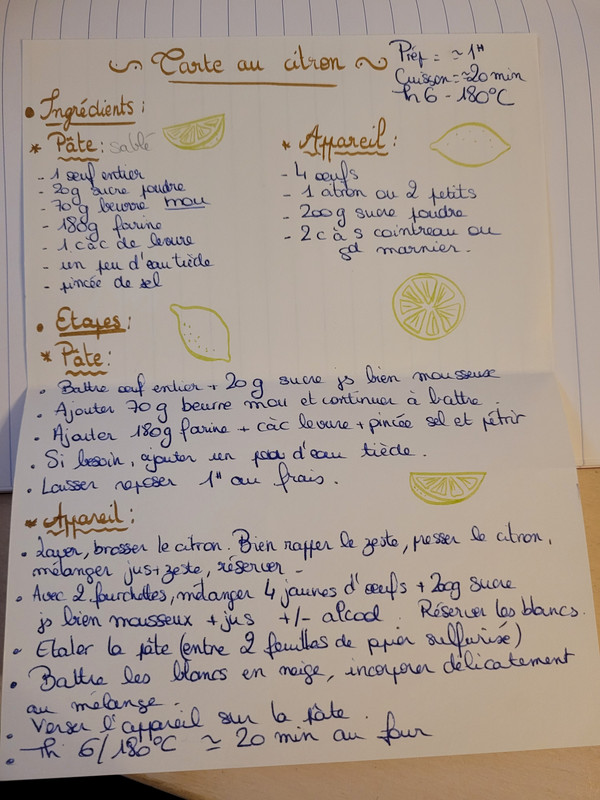 Tarte au citron
Prép = ≃ 1H
Cuisson = ≃20 min
Th 6 - 180°C
• Ingrédients :
* Pâte : sablé
- 1 œuf entier
- 20g sucre poudre
- 70g beurre mou
- 180g farine
- 1 càc de levure
- un peu d'eau tiède
- pincée de sel
* Appareil :
- 4 œufs
- 1 citron ou 2 petits
- 200g sucre poudre
- 2 c à s cointreau ou
gd marnier.
• Etapes :
* Pâte :
• Battre œuf entier + 20g sucre js bien mousseux
• Ajouter 70g beurre mou et continuer à battre.
• Ajouter 180g farine + càc levure + pincée sel et pétrir
• Si besoin, ajouter un peu d'eau tiède.
• Laisser reposer 1H au frais.
* Appareil :
• Laver, brosser le citron. Bien rapper le zeste, presser le citron,
mélanger jus+zeste, réserver -
• Avec 2 fourchettes, mélanger 4 jaunes d'œufs + 200g sucre
js bien mousseux + jus +/- alcool. Réserver les blancs.
• Etaler la pâte (entre 2 feuilles de papier sulfurisé)
• Battre les blancs en neige, incorporer délicatement
au mélange.
• Verser l'appareil sur la pâte.
• Th 6/180°C ≃ 20 min au four